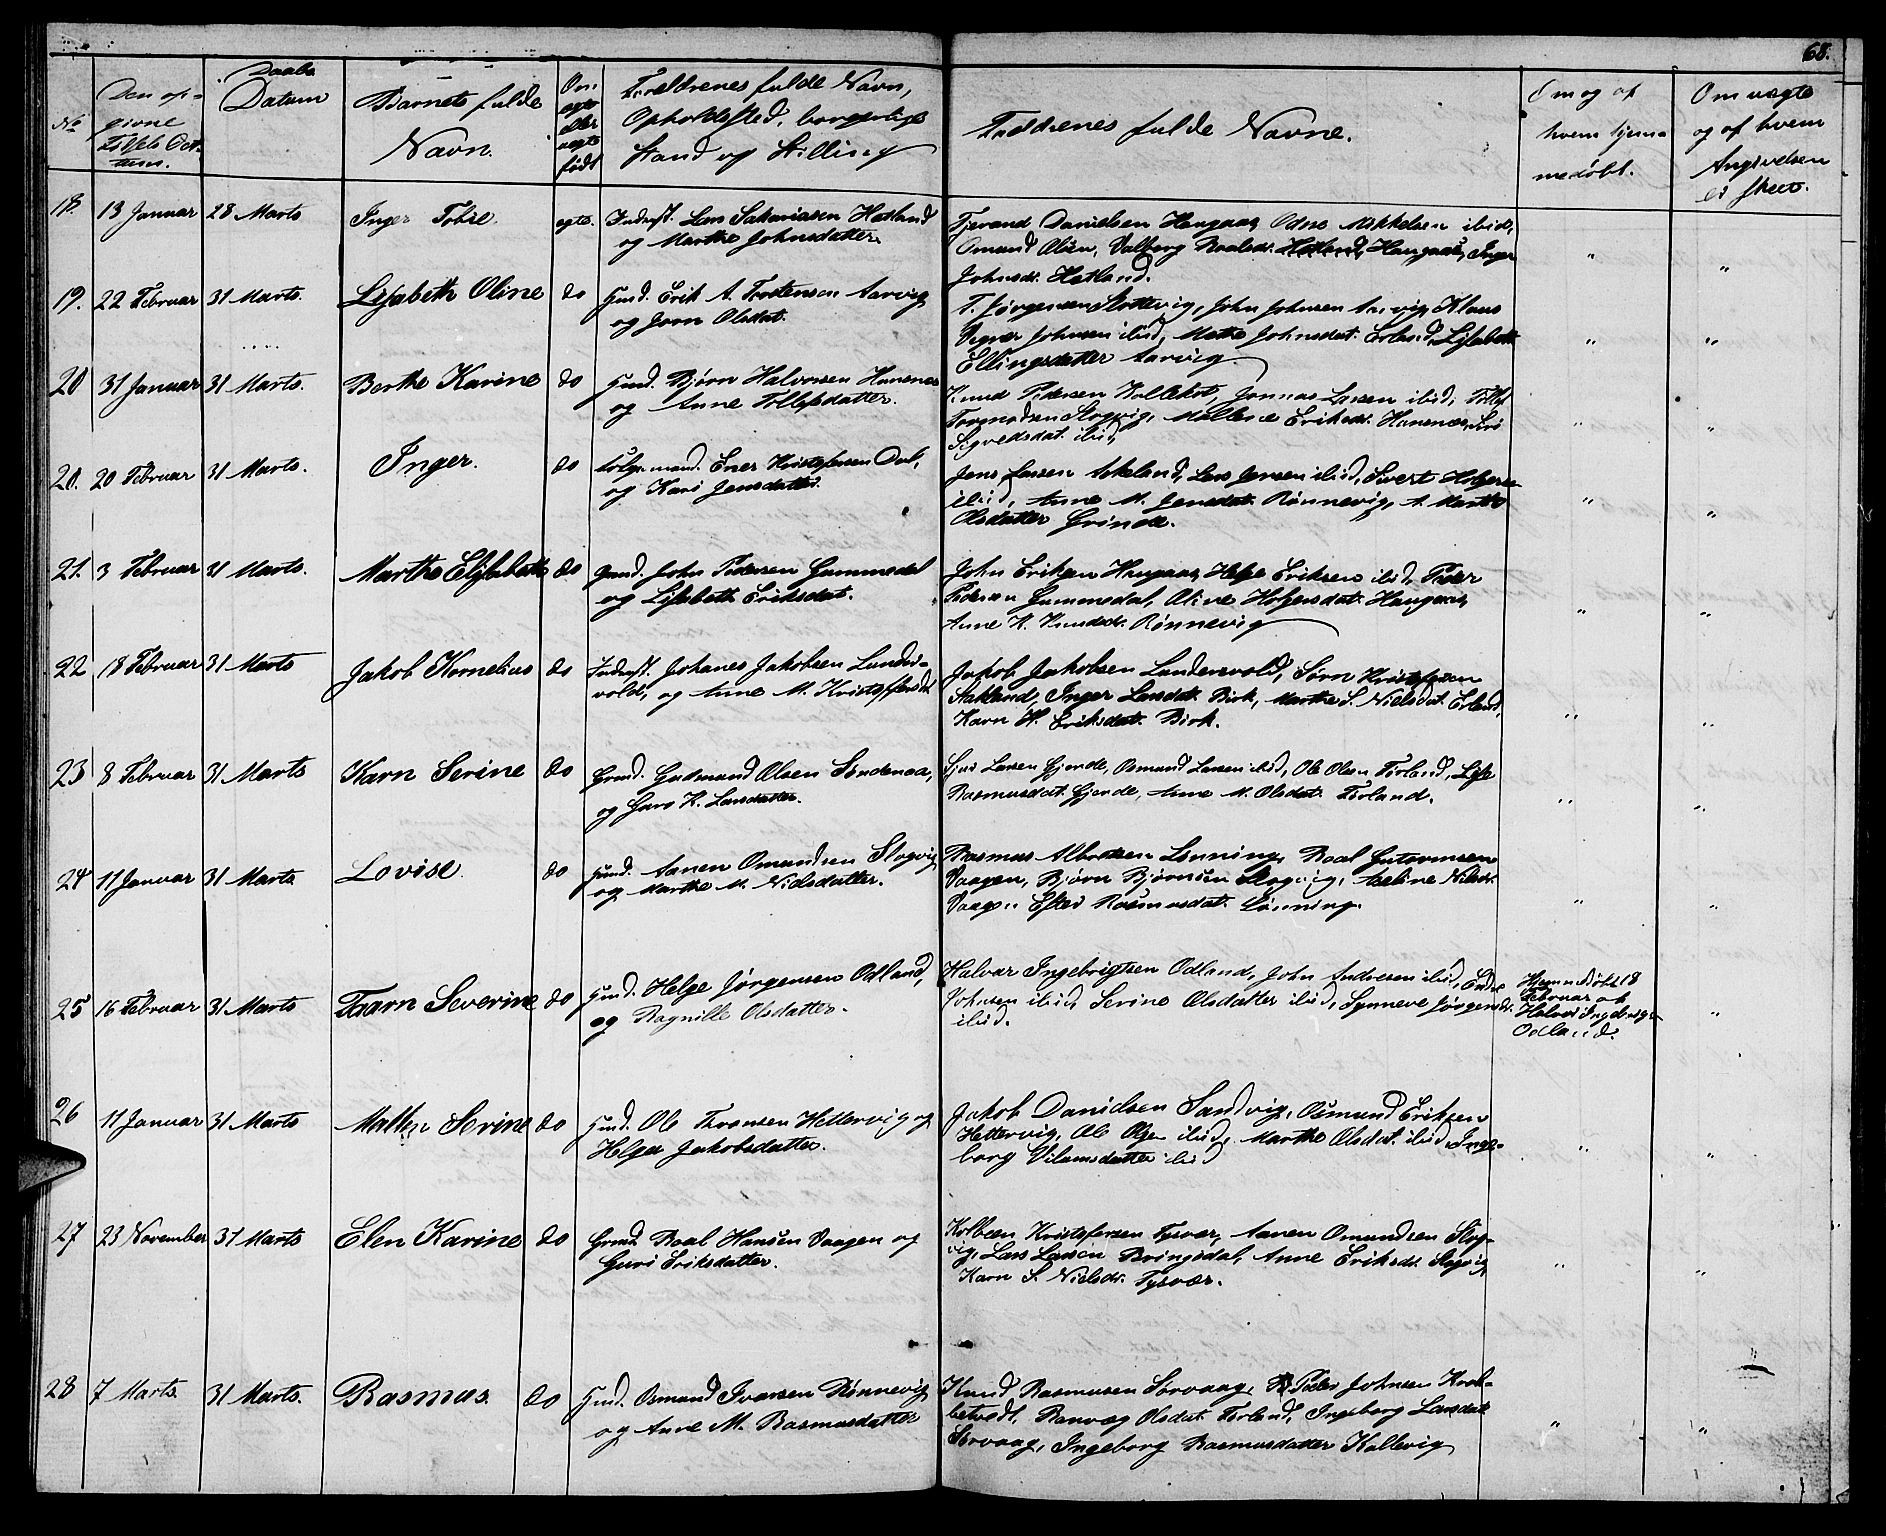 68.
No
Den op-
givne
Fødsels Dat-
tum.
Daabs
Datum
Barnets fulde
Navn.
Om
egte
eller
uegte
født
Forældrenes fulde Navn,
Opholdssted, borgerlige
Stand og Stilling
Faddrenes fulde Navne.
Om og af
hvem hjem-
medøbt.
Om uægte
og af hvem
Angivelsen
er skeet.
18. 13 Januar 28 Marts Inger Tobie. egte. Inderst. Lars Sakariassen Hatland
og Marthe Johnsdatter.
Tjerand Danielsen Haugaas, Odne Mikkelsen ibid,
Omund Olsen, Valborg Roalsdr. Hatland, Haugaas, Inger
Johnsdr. Hatland.
" "
19. 22 Februar 31 Marts. Lisabeth Oline do Gmd. Erik A. Trostensen Aarvig
og Jorn Olsdat.
T. Jørgensen Stottevig, John Johnsen Aarvig, Klaus
Johnsen ibid, Mette Johnsdat. Erland, Lisabeth
Ellingsdatter Aarvig
" "
20 31 Januar 31 Marts. Berthe Karine do Gmd. Bjørn Halvorsen Hanenæs
og Anne Tollefsdatter.
Knud Pedersen Kolleknt, Jonnas Larsen ibid, Tollef
Tormodsen Slogvig, Mallene Eriksdr. Hanenæs, Siri
Sigvedsdat. ibid,
" "
20. 20 Februar 31 Marts. Inger. do Følgemand. Ener Kristofersen Dal,
og Kari Jensdatter.
Jens Larsen Askeland, Lars Jensen ibid, Sivert Holgersen
ibid, Anne M. Jensdat. Rønnevig, A. Marthe
Olsdatter Grinde.
" "
21. 3 Februar 31 Marts. Marthe Elisabeth do Gmd. John Pedersen Gummedal
og Lisabeth Eriksdat.
John Eriksen Haugaas, Helge Eriksen ibid, Peder
Pedersen Gummedal, Oline Holgersdat. Haugaas,
Anne K. Knudsdr. Rønnevig
" "
22 18 Februar 31 Marts Jakob Kornelius do Inderst. Johanes Jakobsen Lunders-
vold, og Anne M. Kristoffersdr.
Jakob Jakobsen Lundersvold, Sørn Kristofersen
Stakland, Inger Larsdat. Birk, Marthe S. Nielsdat. Erland,
Karn H. Eriksdat. Birk.
" "
23 8 Februar 31 Marts Karn Serine do Gmd. Gudmund Olsen Søndenaa,
og Guro K. Larsdatter.
Sjur Larsen Gjerde, Osmund Larsen ibid, Ole Olsen Førland, Lise
Rasmusdat. Gjerde, Anne M. Olsdat. Førland.
" "
24 11 Januar 31 Marts Lovise. do Gmd. Aanen Omundsen Slogvig
og Marthe M. Nielsdatter.
Rasmus Albretsen Lønning, Roal Gutormsen
Vaagen, Bjørn Bjørnsen Slogvig, Aseline Nilsdr.
Vaagen Ester Rasmusdat. Lønning.
" "
25 16 Februar 31 Marts Tharn Severine do Gmd. Helge Jørgensen Odland,
og Ragnille Olsdatter.
Halvar Ingebrigtsen Odland, John Andresen ibid, Endre
Johnsen ibid, Serine Olsdatter ibid, Synneve Jørgensdr.
ibid.
Hjemmedøbt 18
Februar af
Halvor Ingebrigts.
Odland.
"
26 11 Januar 31 Marts Mallen Serine do Gmd. Ole Thronsen Hettervig og
Helga Jakobsdatter.
Jakob Danielsen Sandvig, Osmund Eriksen
Hettervig, Ole Olsen ibid, Marthe Olsdat. ibid, Inge-
borg Vilamsdatter ibid
" "
27 23 November 31 Marts Elen Karine do Gmd. Roal Hansen Vaagen og
Guri Eriksdatter.
Kolbeen Kristofersen Tysvær, Aanen Omundsen Slog-
vig, Lars Larsen Bringedal, Anne Eriksdr. Slogvig,
Karn S. Nielsdr. Tysvær.
" "
28 7 Marts. 31 Marts. Rasmus. do Gmd. Osmund Ivarsen Rønnevig
og Anne M. Rasmusdatter
Knud Rasmusen Sørvaag, Peder Johnsen Krok-
betvedt, Ranvæg Olsdat. Førland, Ingeborg Larsdat.
Sørvaag, Ingeborg Rasmusdatter Kallevig
" "